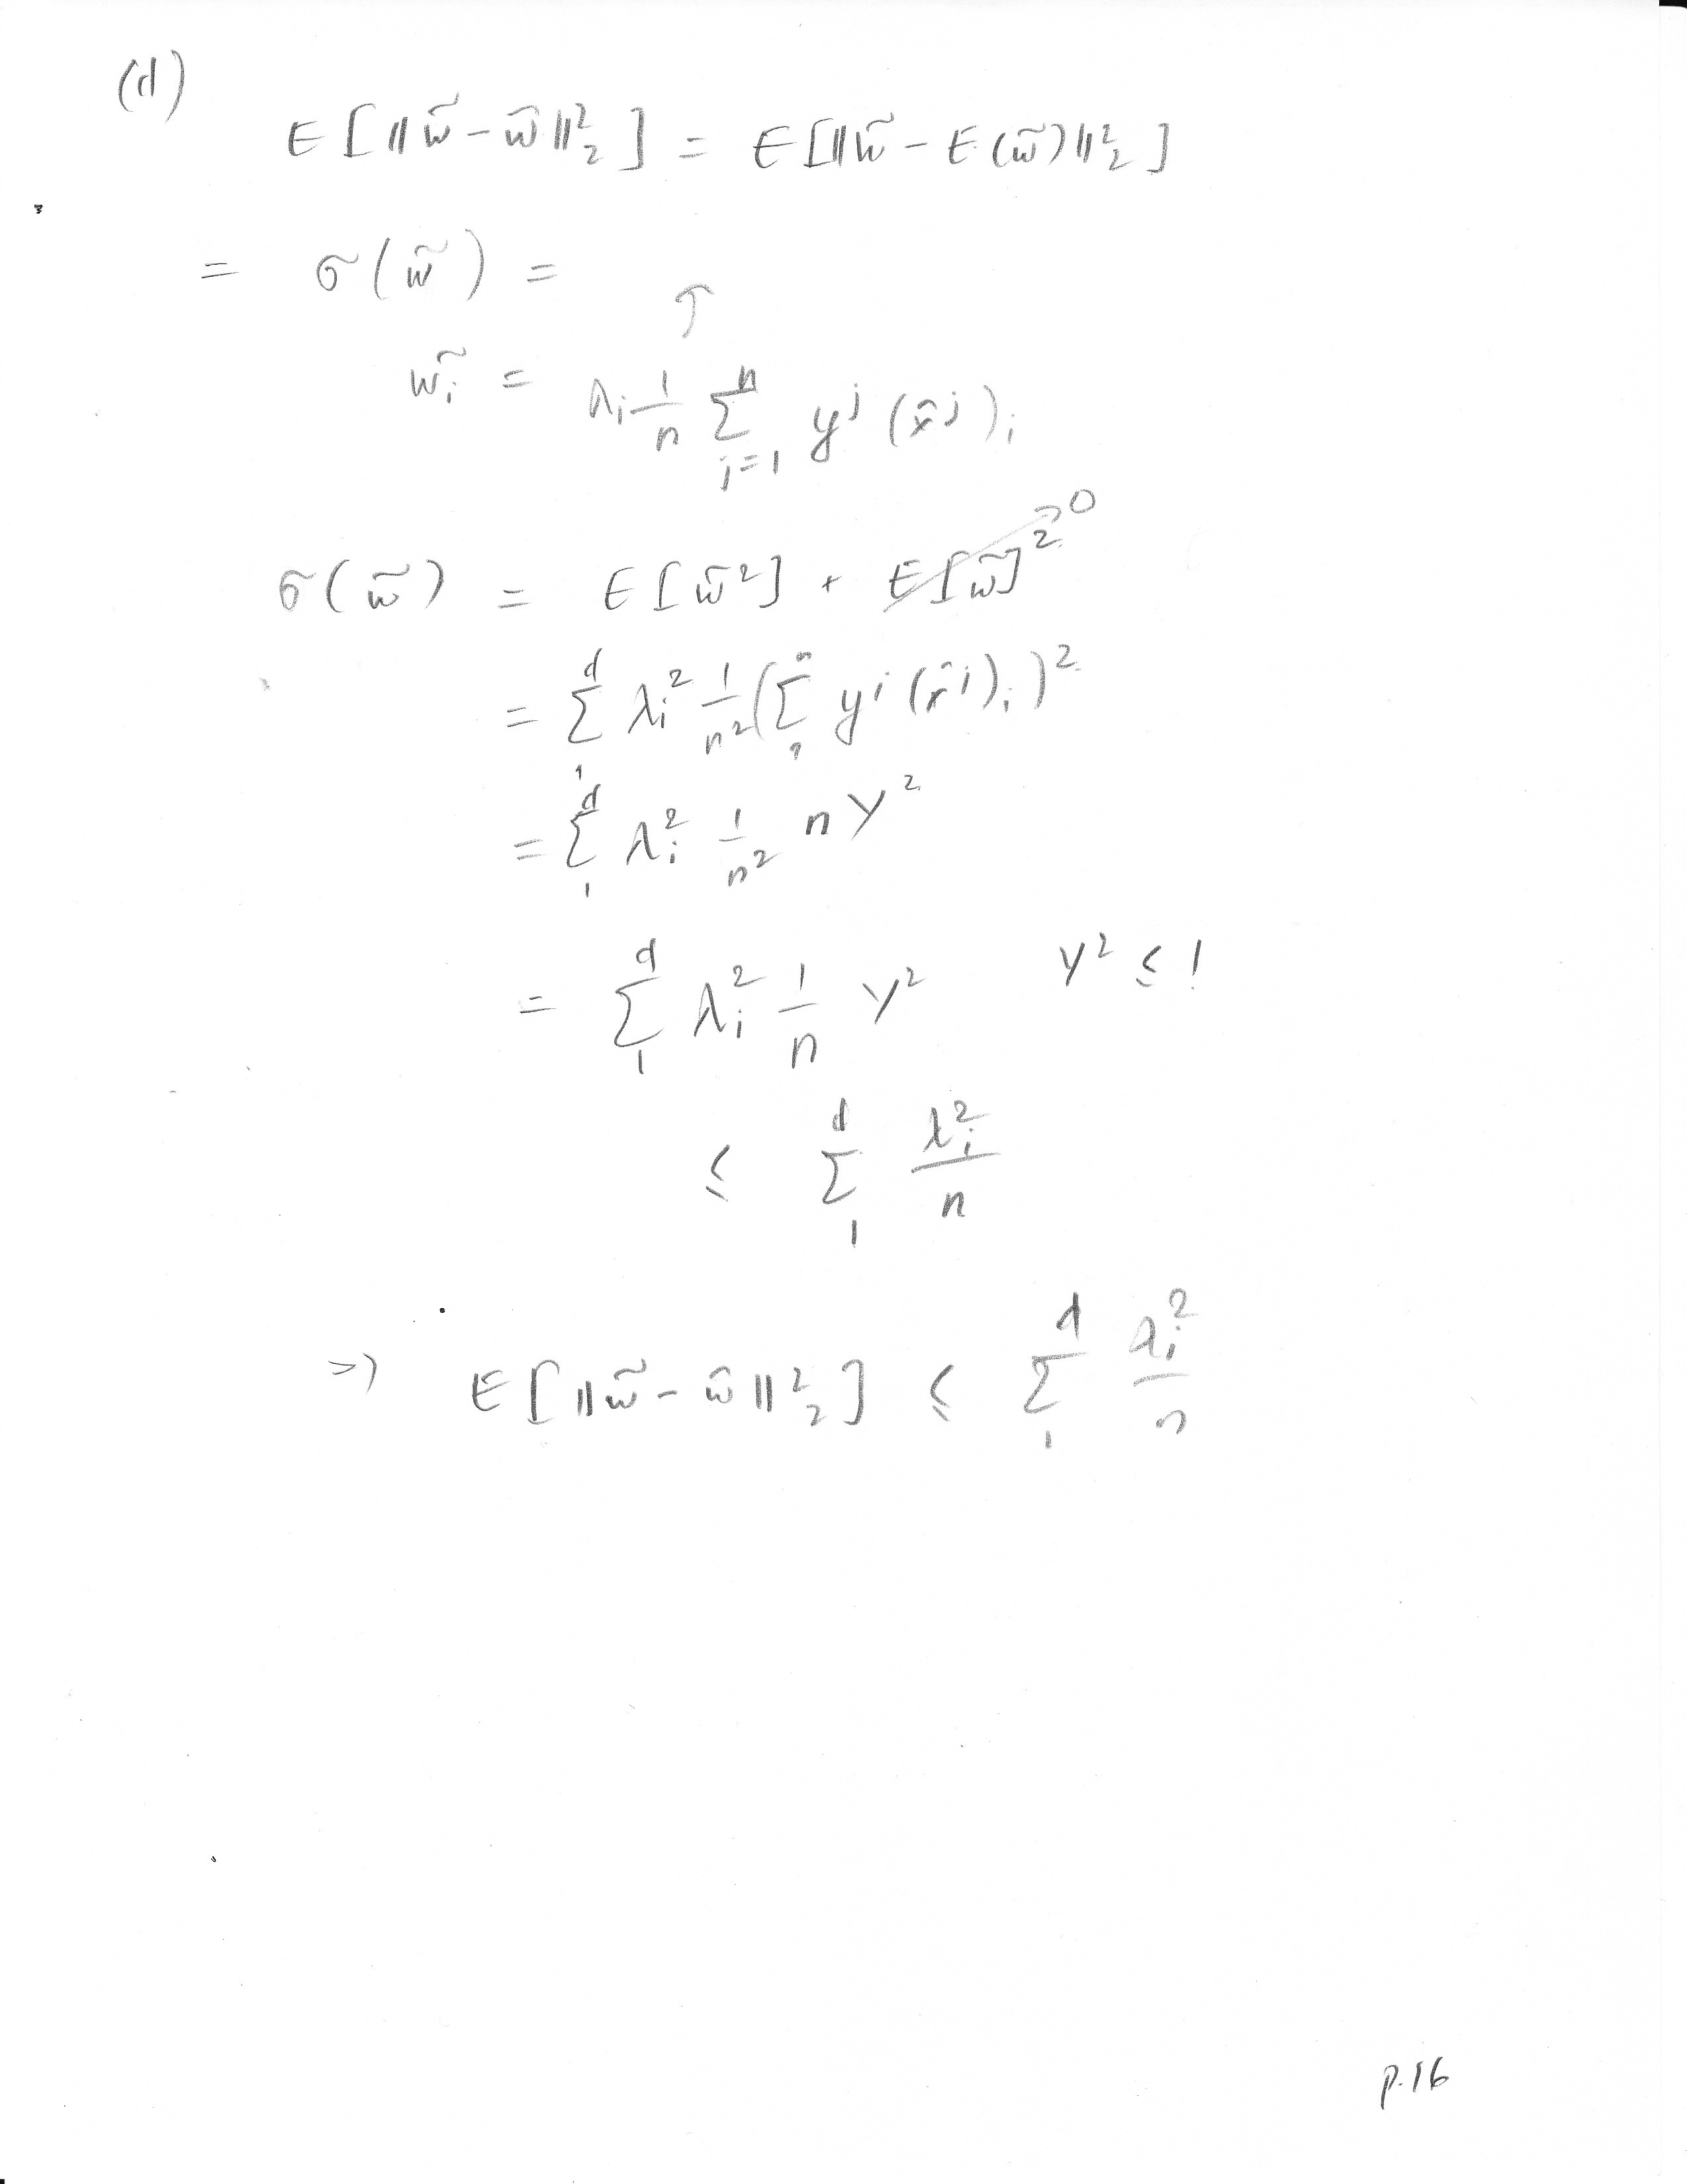 (d)
E[||w̃ - ŵ||²₂] = E[||w̃ - E(w̃)||²₂]
= σ(w̃) =
w̃ᵢ = λᵢ 1/n Σⁿⱼ₌₁ yʲ (x̂ʲ)ᵢ
σ(w̃) = E[w̃²] + E[w̃]² → 0
= Σᵈ₁ λᵢ² 1/n² (Σⁿ yʲ (x̂ʲ)ᵢ)²
= Σᵈ₁ λᵢ² 1/n² n y²
= Σᵈ₁ λᵢ² 1/n y² y² ≤ 1
≤ Σᵈ₁ λᵢ²/n
=> E[||w̃ - ŵ||²₂] ≤ Σᵈ₁ λᵢ²/n
p.16